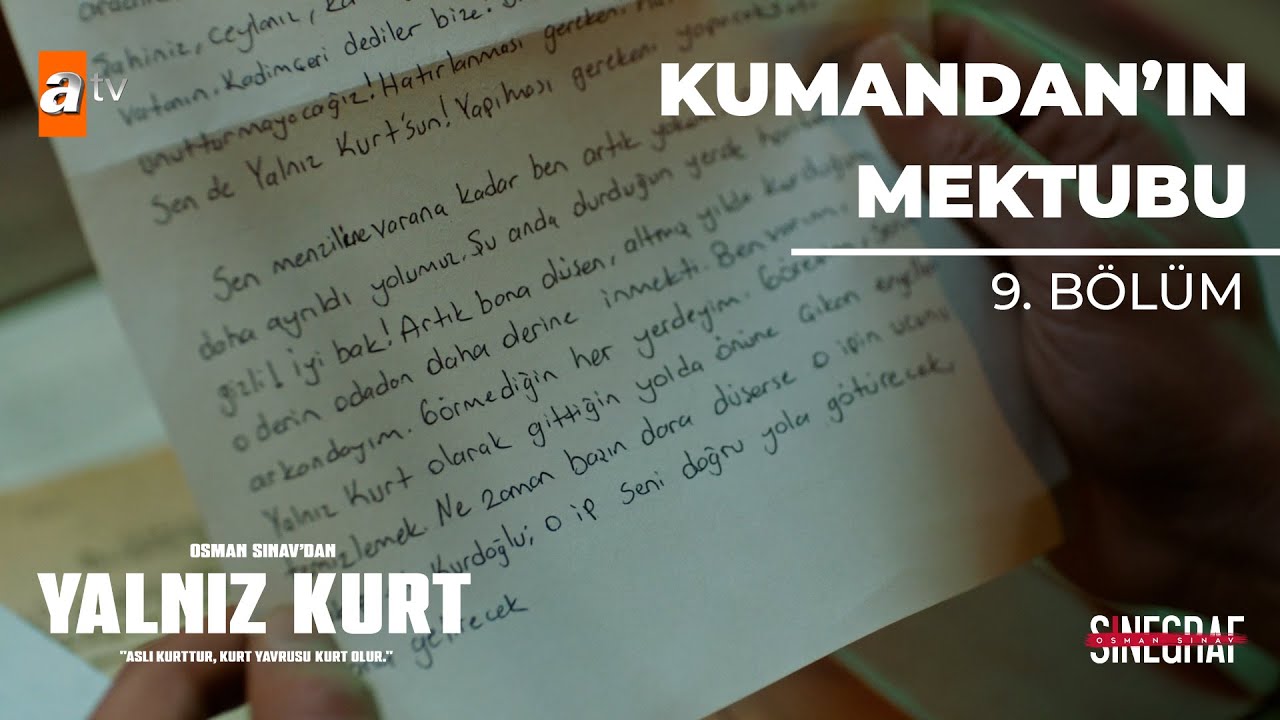 atv
KUMANDAN'IN
MEKTUBU
9. BÖLÜM
Şahiniz, Ceylanız,
vatanın. Kadimçeri dediler bize!
unutturmayacağız! Hatırlanması gereken
Sen de Yalnız Kurt'sun! Yapılması gerekeni yapacaksın.
Sen menziline varana kadar ben artık
daha ayrıldı yolumuz. Şu anda durduğun yerde
gizli! İyi bak! Artık bana düşen, altmış yılda kurduğum
o derin odadan daha derine inmekti. Ben varım,
arkandayım. Görmediğin her yerdeyim.
Yalnız Kurt olarak gittiğin yolda önüne çıkan
temizlemek. Ne zaman başın dara düşerse o ipin ucunu
Kurdoğlu; o ip seni doğru yola götürecek,
getirecek
OSMAN SINAV'DAN
YALNIZ KURT
"ASLI KURTTUR, KURT YAVRUSU KURT OLUR."
SINEGRAF
OSMAN SINAV